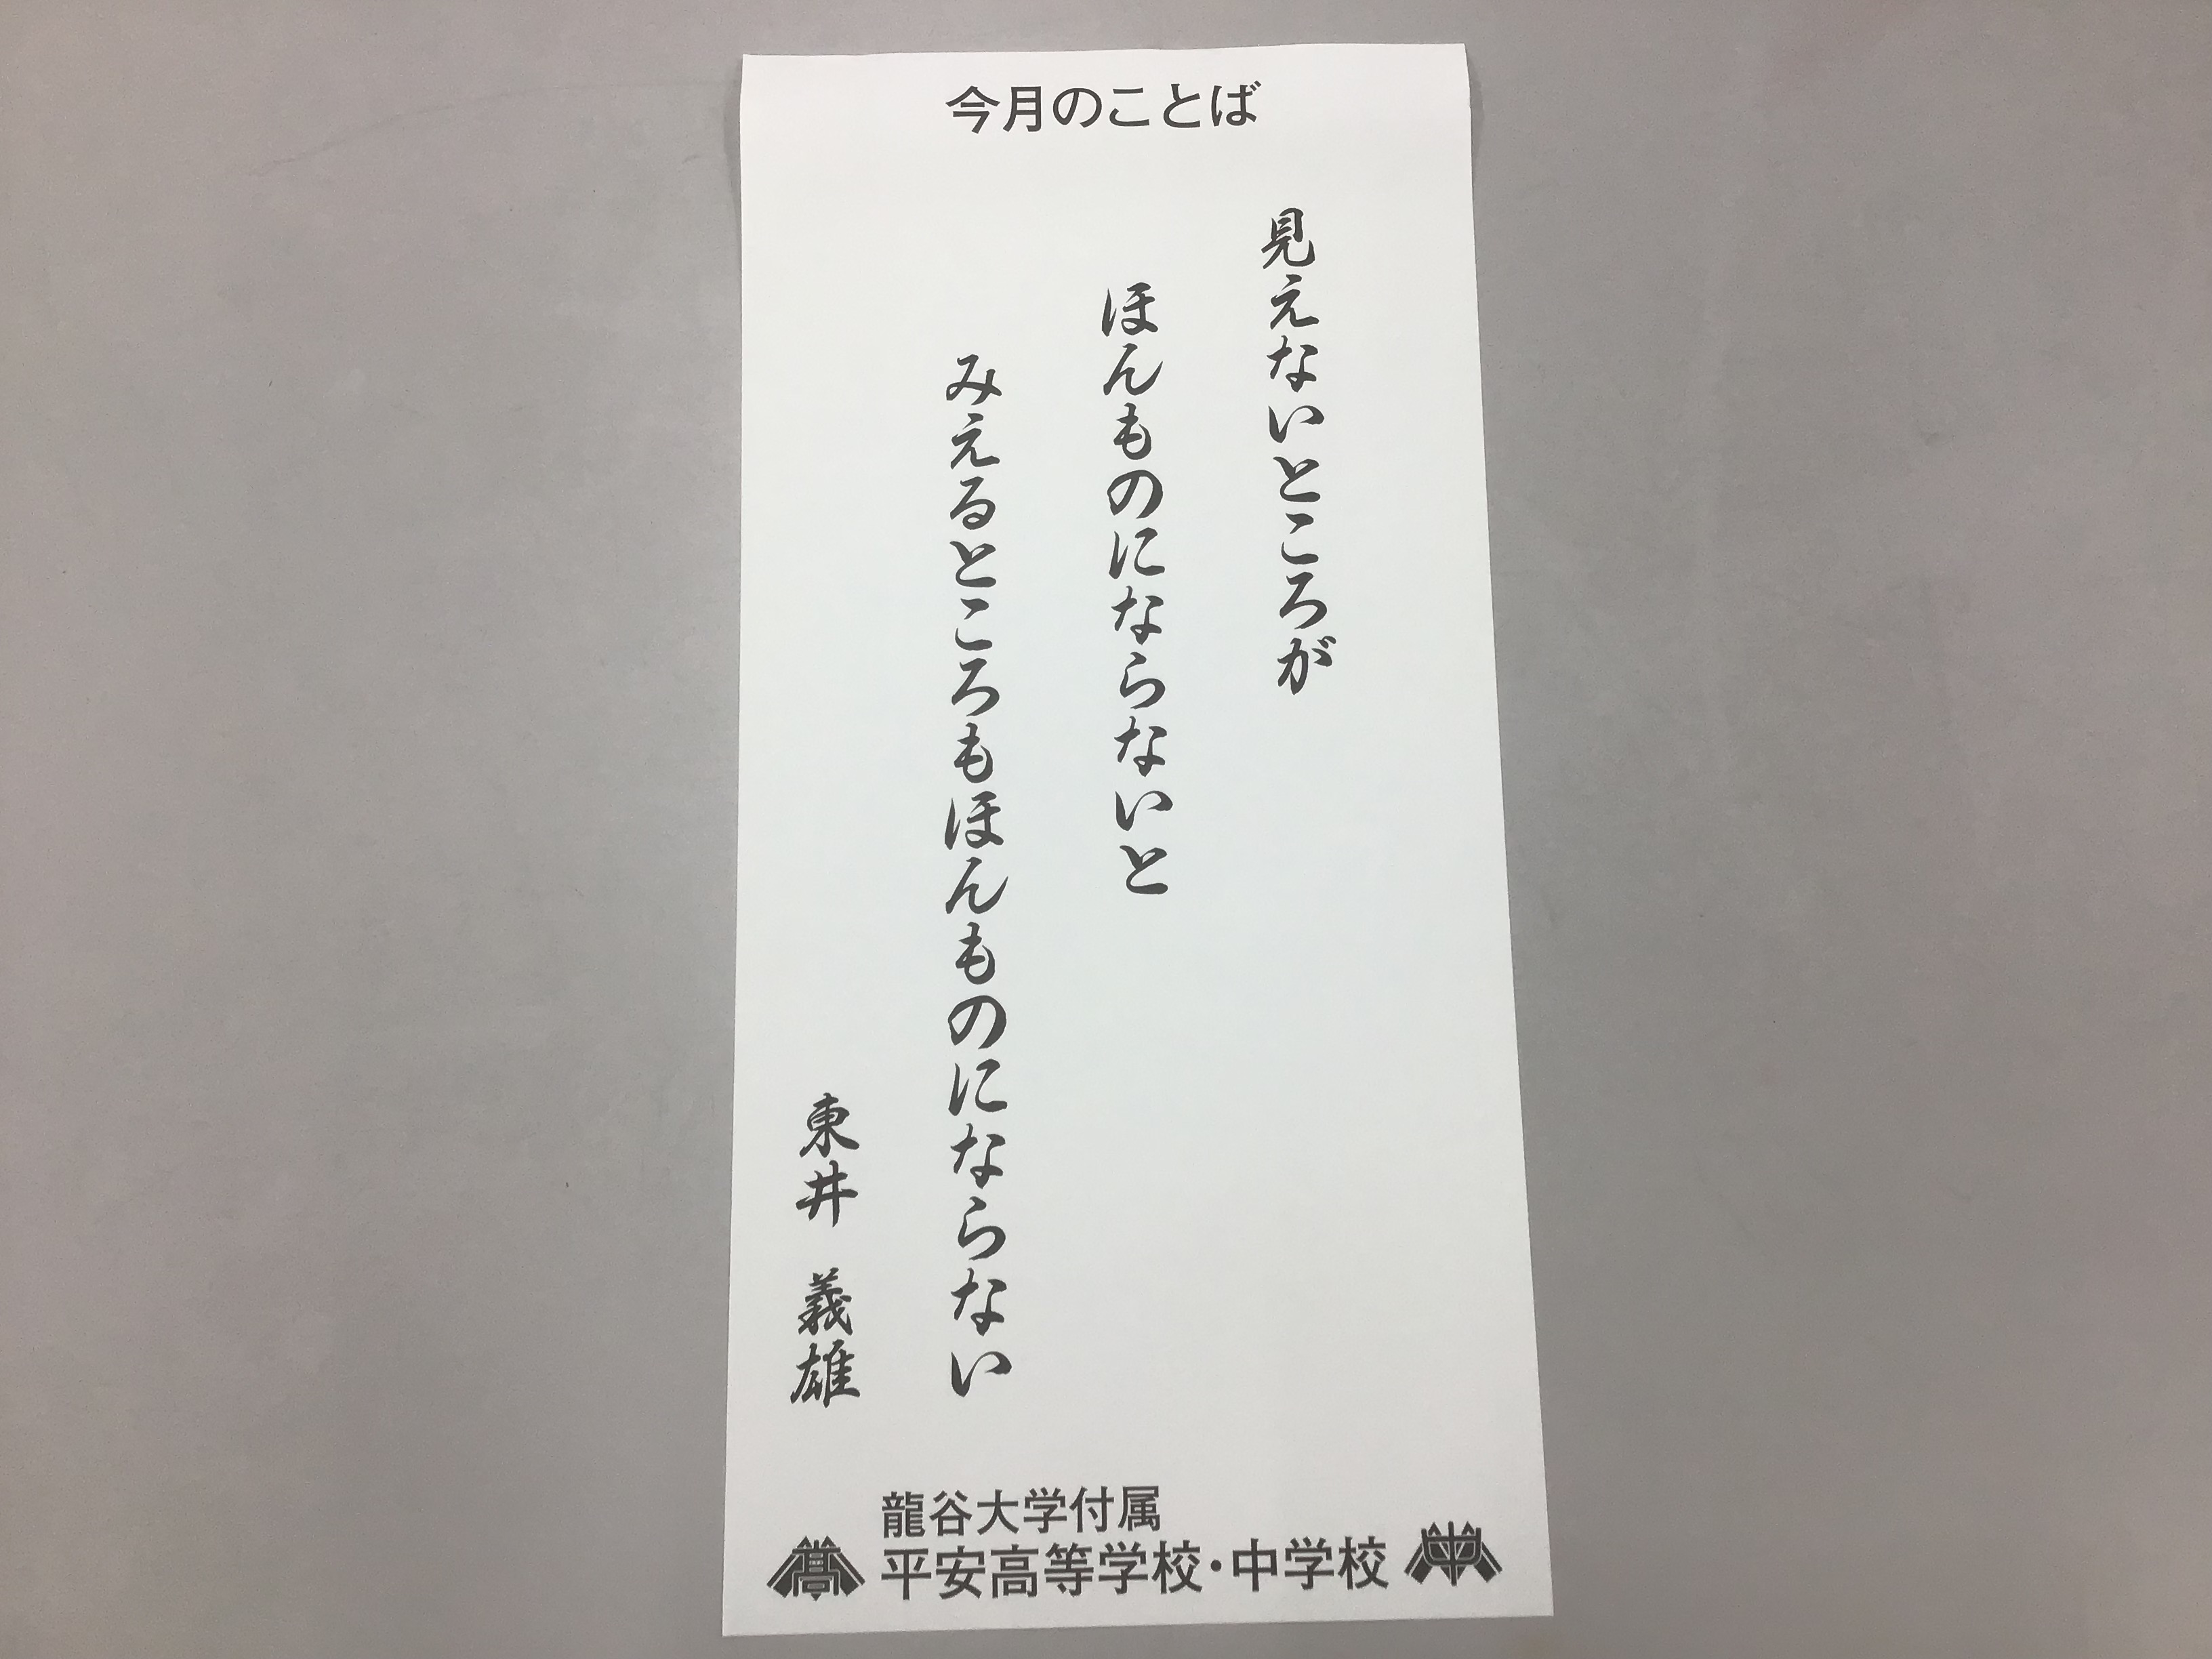 今月のことば
見えないところが
ほんものにならないと
みえるところもほんものにならない
東井 義雄
龍谷大学付属
平安高等学校・中学校
高
中